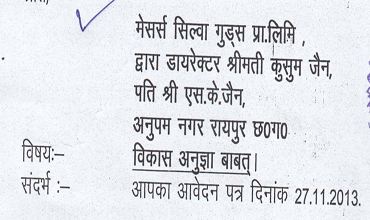 मेसर्स सिल्वा गुड्स प्रा.लिमि ,
द्वारा डायरेक्टर श्रीमती कुसुम जैन,
पति श्री एस.के.जैन,
अनुपम नगर रायपुर छ0ग0
विषयः– विकास अनुज्ञा बाबत्।
संदर्भ :– आपका आवेदन पत्र दिनांक 27.11.2013.